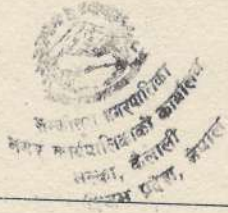 नगरपालिका
नगर कार्यपालिकाको कार्यालय
लम्की, कैलाली
प्रदेश, नेपाल